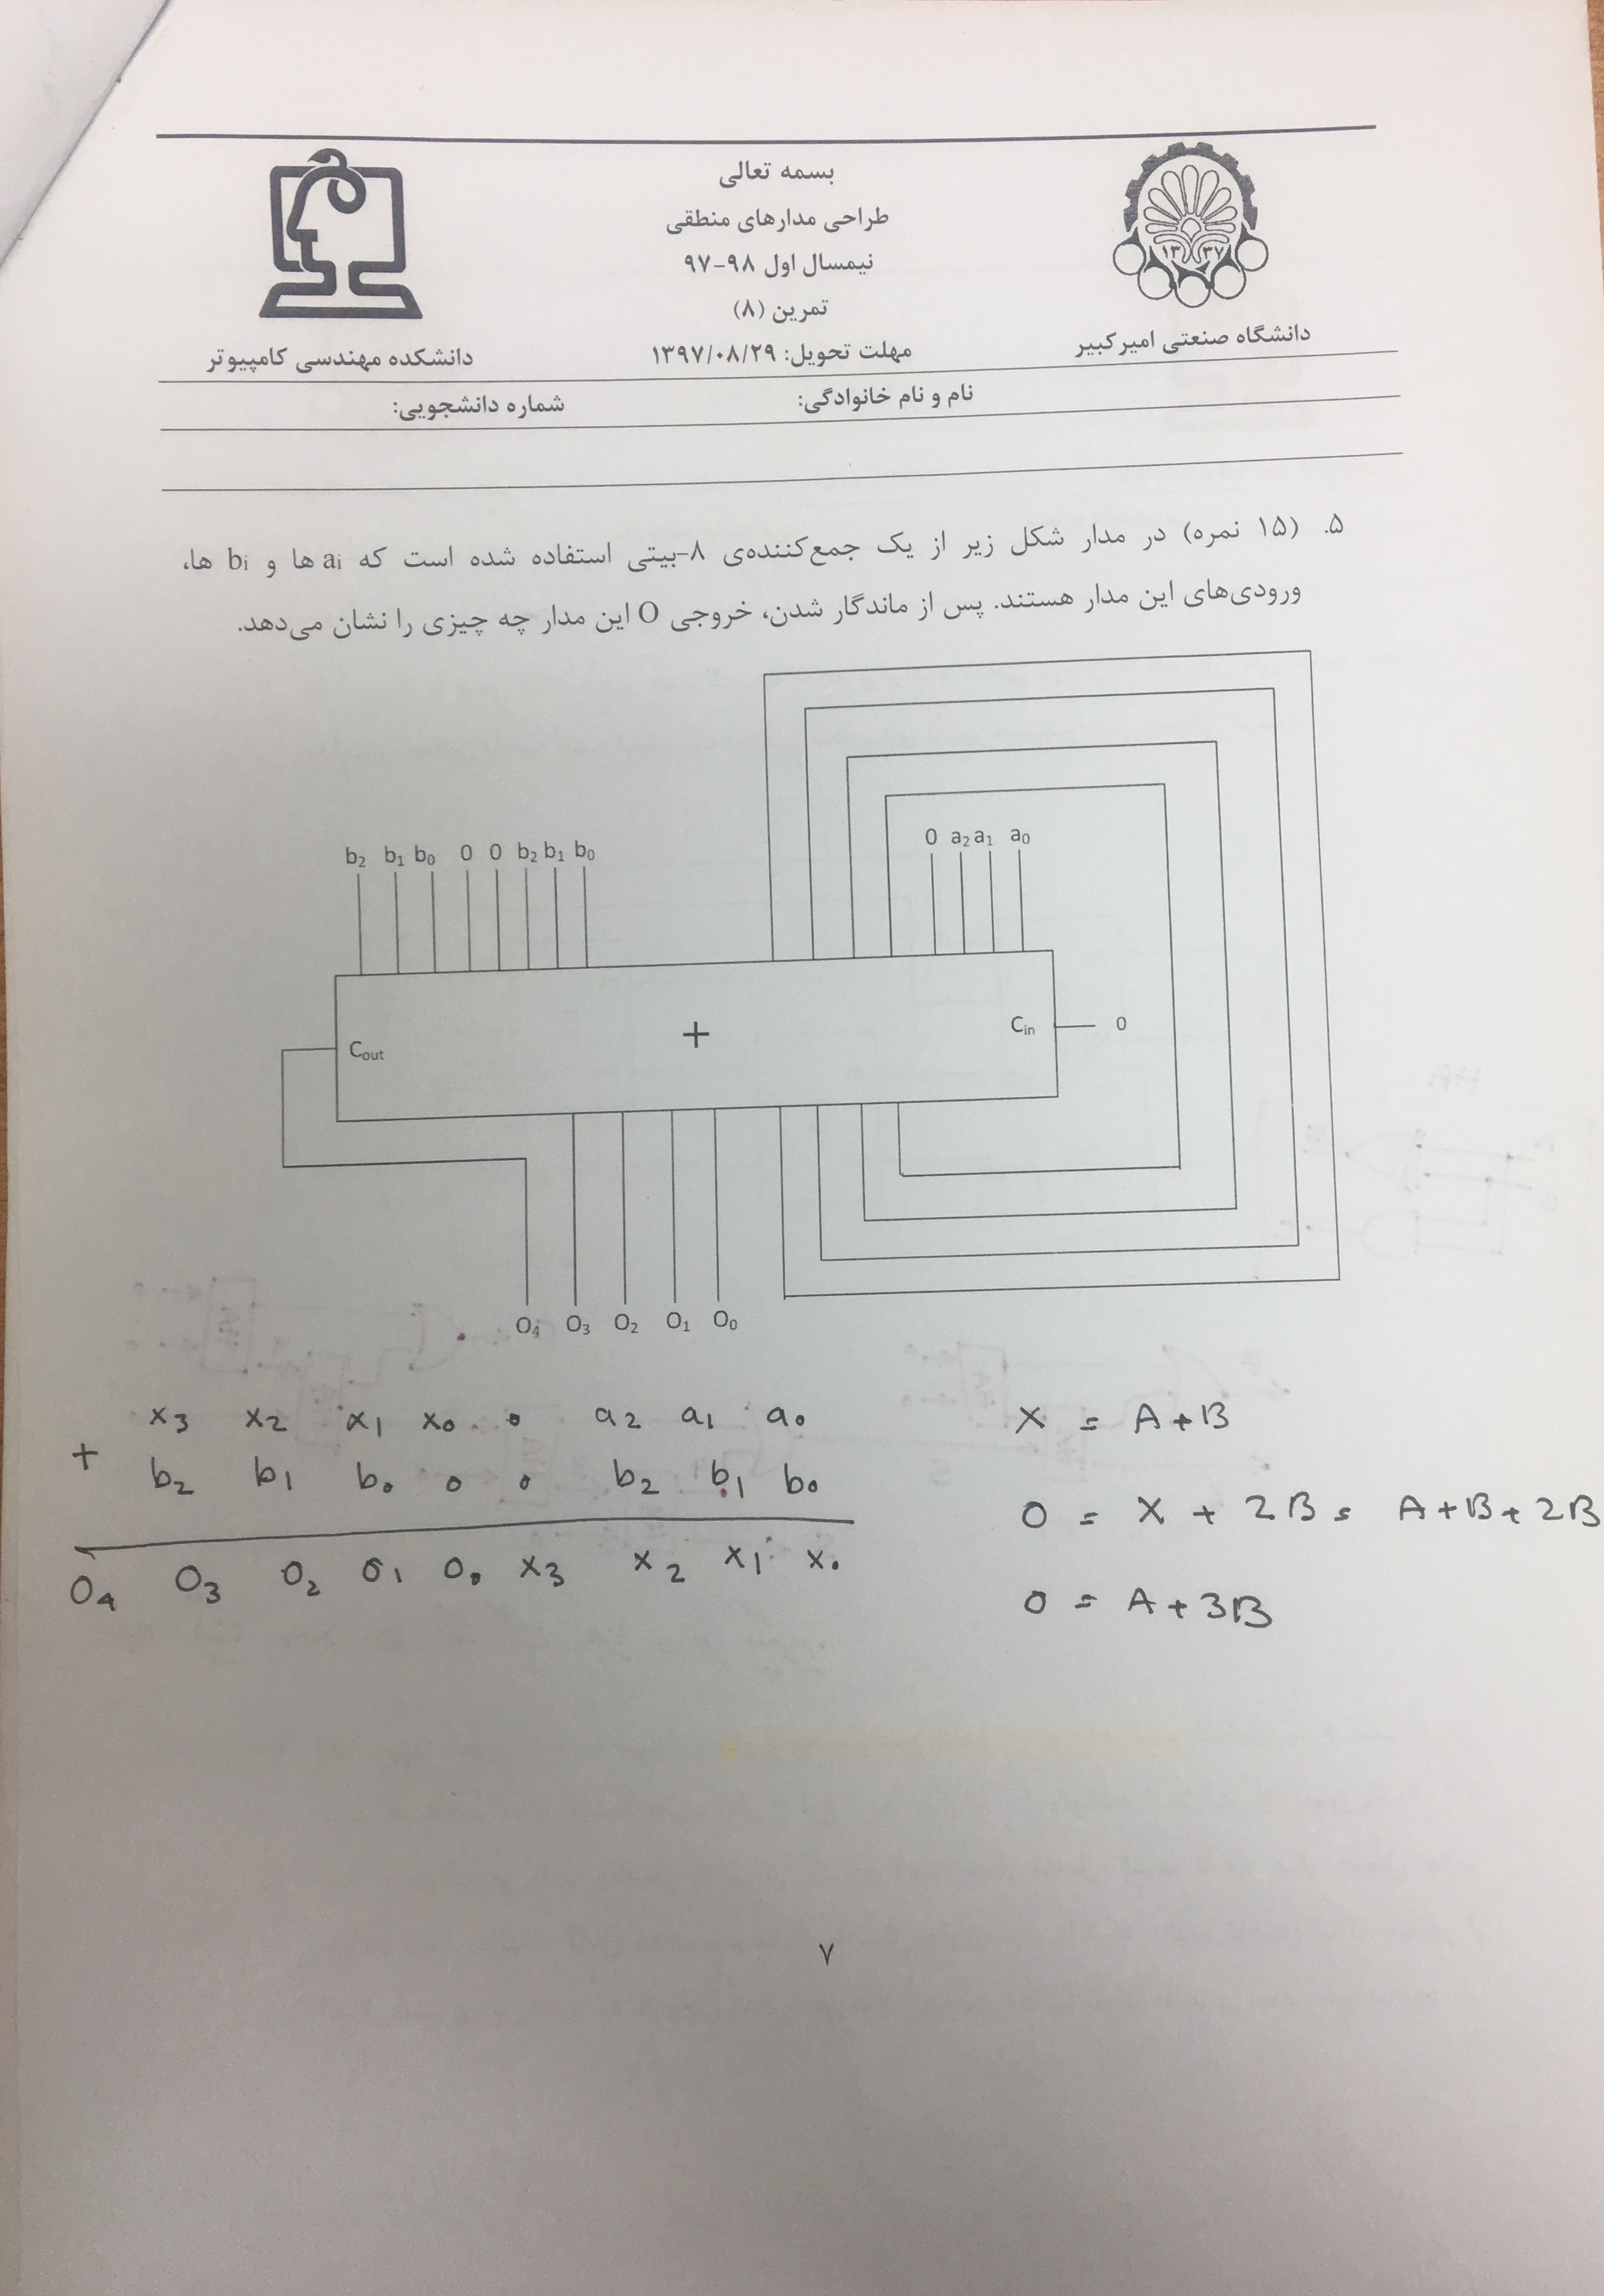 بسمه تعالی
طراحی مدارهای منطقی
نیمسال اول ۹۸-۹۷
تمرین (۸)
مهلت تحویل: ۱۳۹۷/۰۸/۲۹
۱۳ ۳۷
دانشگاه صنعتی امیرکبیر
دانشکده مهندسی کامپیوتر
نام و نام خانوادگی:
شماره دانشجویی:
۵. (۱۵ نمره) در مدار شکل زیر از یک جمع‌کننده‌ی ۸-بیتی استفاده شده است که ai ها و bi ها،
ورودی‌های این مدار هستند. پس از ماندگار شدن، خروجی O این مدار چه چیزی را نشان می‌دهد.
b2 b1 b0 0 0 b2 b1 b0
0 a2 a1 a0
Cout + Cin 0
O4 O3 O2 O1 O0
x3 x2 x1 x0 0 a2 a1 a0
+ b2 b1 b0 0 0 b2 b1 b0
O4 O3 O2 O1 O0 x3 x2 x1 x0
X = A+B
O = X + 2B = A+B+2B
O = A+3B
۷